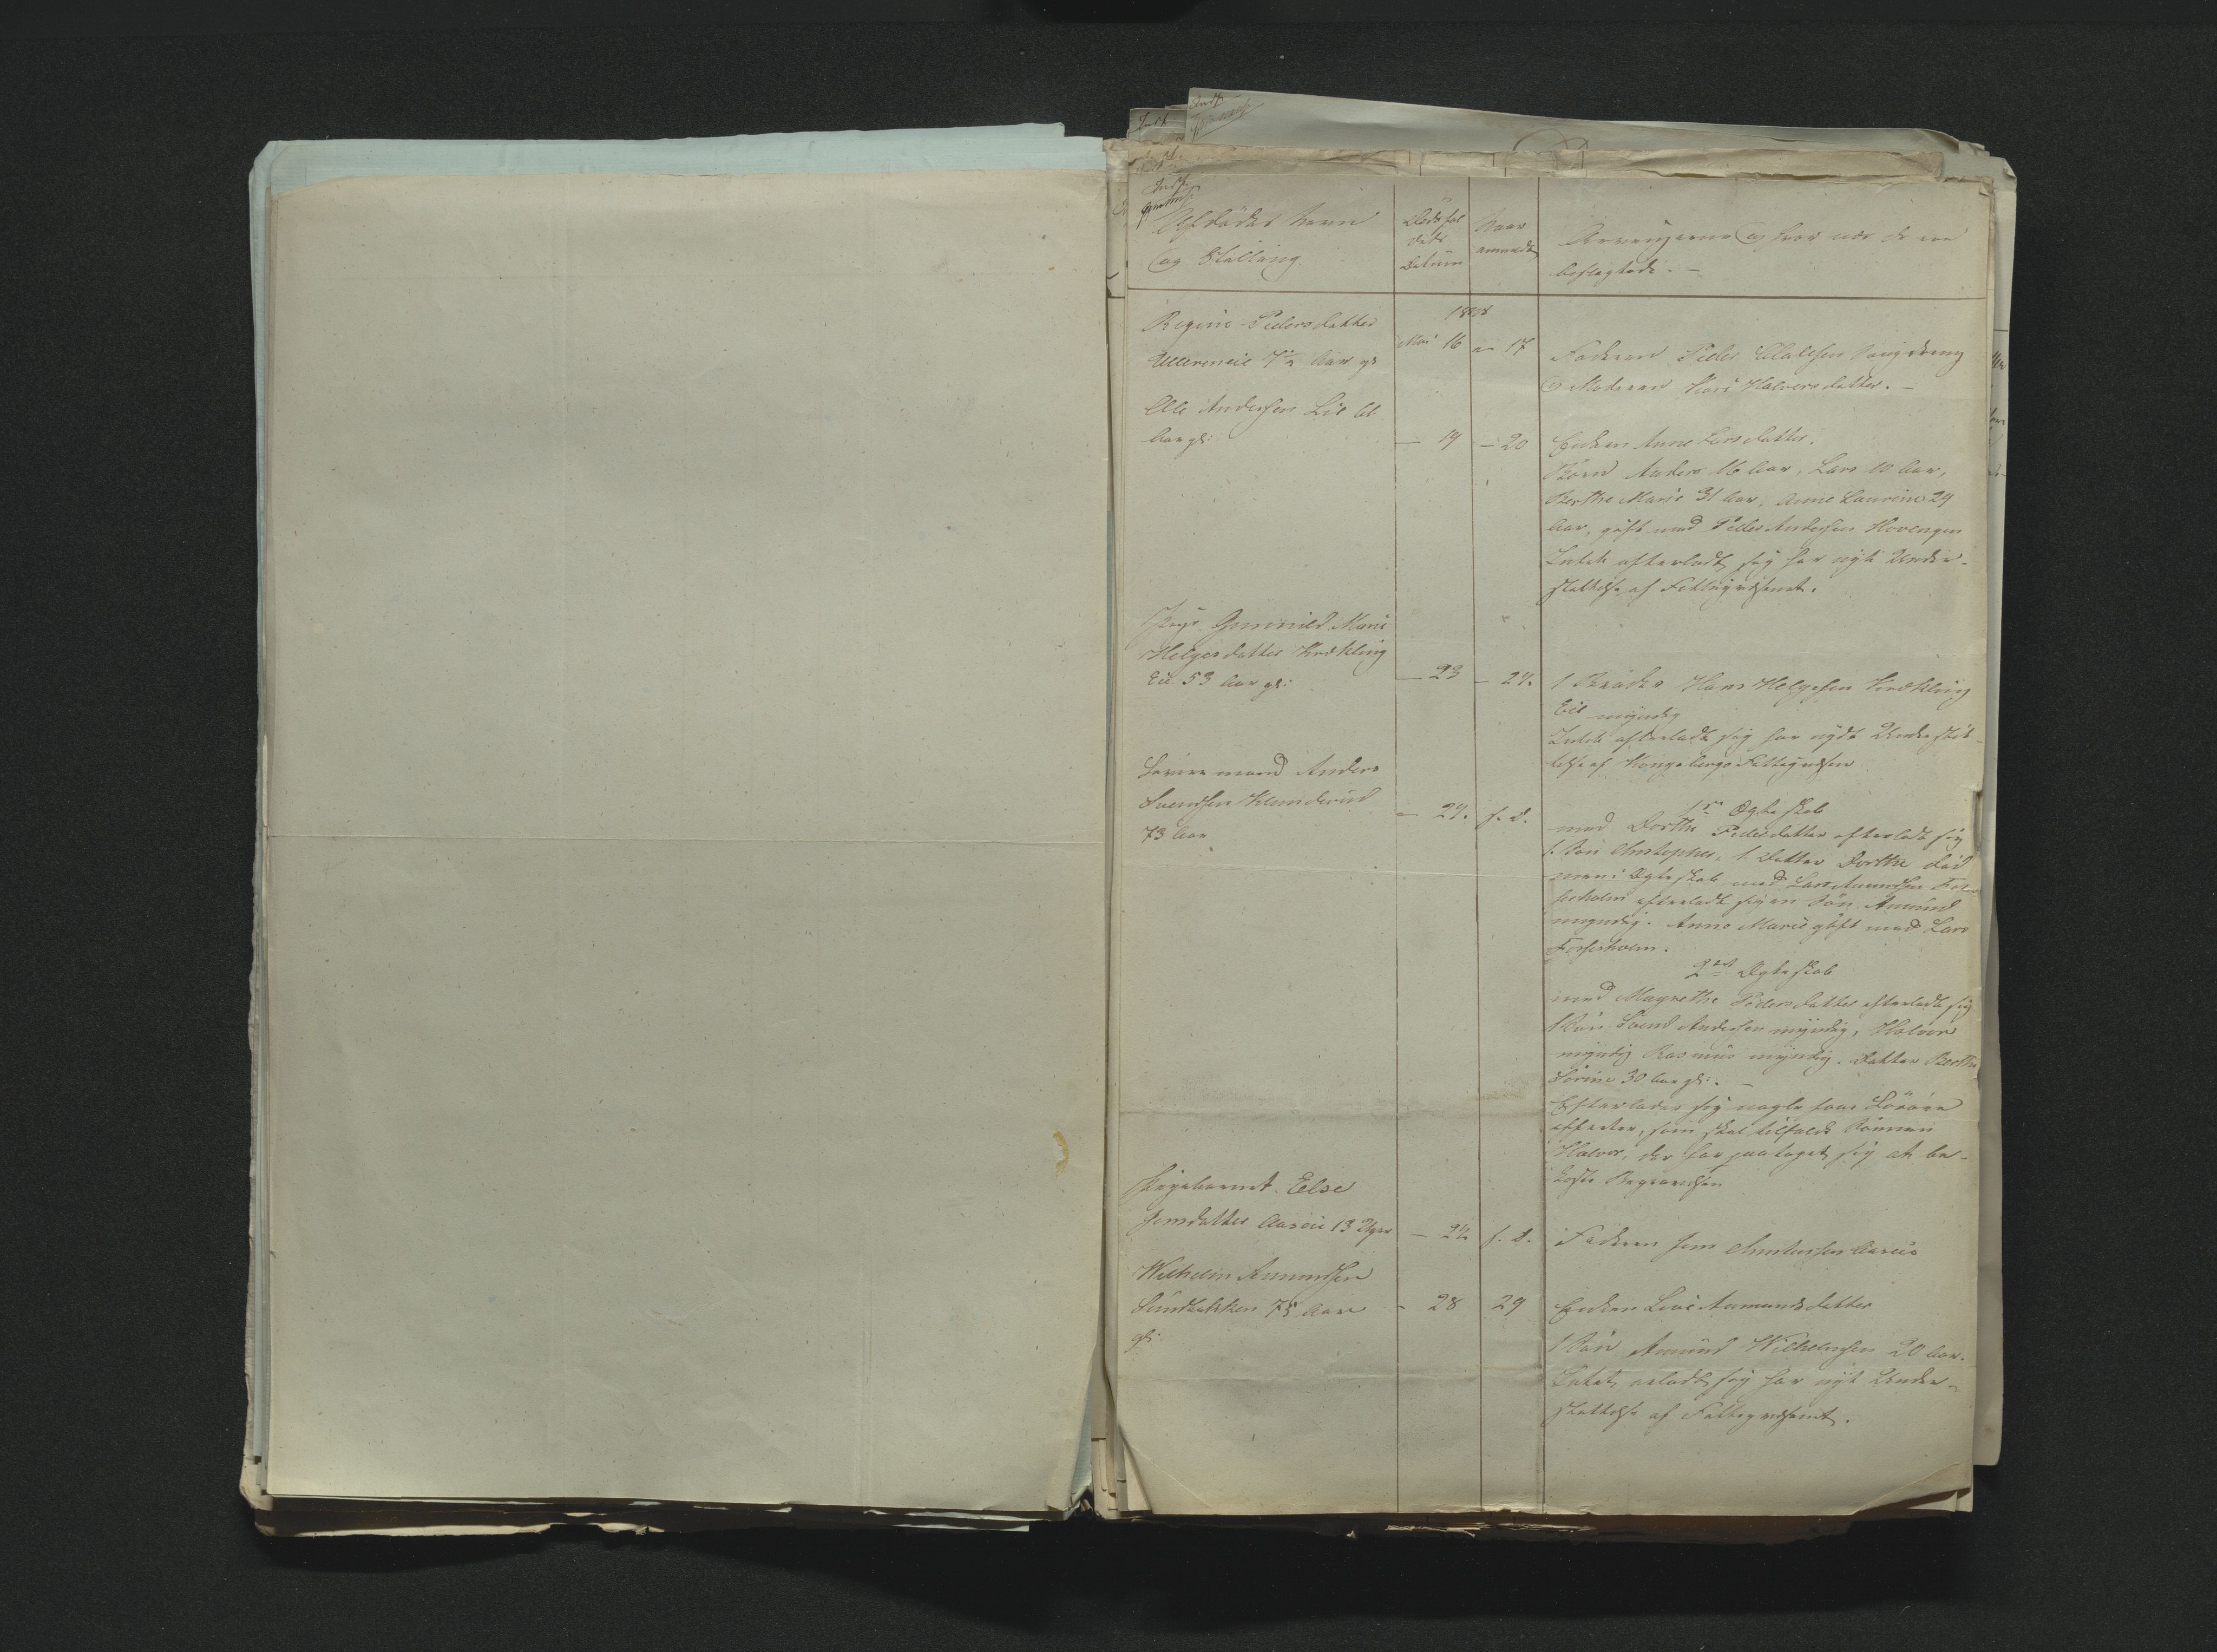 Afdødes Navn
og Stilling
Dødsfal
dets
Datum
Naar
anmeldt
Arvingerne og hvor nær de ere
beslægtede. –
Regine Pedersdatter
Ullereneie 7½ Aar gl
Mai 16
17
Faderen Peder Olelsen
Moderen Kari Halvorsdatter. –
Ole Andersen Lie
Aar gl:
– 19
– 20
Enken Anne Larsdatter.
Børn Anders 16 Aar, Lars 10 Aar,
Berthe Marie 31 Aar, Anne Laurine 24
Aar, gift med Peder Andersen Hovengen
Intet efterladt sig har nydt Under-
støttelse af Fattigvæsenet.
Pige Gunnild Marie
Helgesdatter Krækling
Eie 53 Aar gl:
– 23
– 24.
1 Broder Hans Helgesen Krækling
Eie myndig
Intet efterladt sig har nydt Understøt-
telse af Kongsbergs Fattigvæsen
Anders
Svendsen Klunderud
73 Aar
– 24.
s. d.
1ste Ægteskab
med Dorthe Pedersdatter efterladt sig
1 Søn Christopher, 1 Datter Dorthe død
var i Ægteskab med Lars Amundsen
efterladt sig en Søn Amund
myndig. Anne Marie gift med Lars
Fosserholm.
2det Ægteskab
med Magrethe Pedersdatter efterladt sig
1 Søn Svend Andersen myndig, Halvor
myndig Rasmus myndig. Datter Berthe
Sørine 30 Aar gl:. –
Efterlader sig nogle faa
effecter, som skal tilfalde Sønnen
Halvor, der har paataget sig at be-
koste Begravelsen
Pigebarnet Else
Jensdatter Aaseie 13 Uger
– 24
s. d.
Faderen Jens Christensen Aaseie
Wilhelm Amundsen
Sundbakken 75 Aar
gl:
– 28
29
Enken Live Aamundsdatter
1 Søn Amund Wilhelmsen 20 Aar.
Intet efterladt sig har nydt Under-
støttelse af Fattigvæsenet.